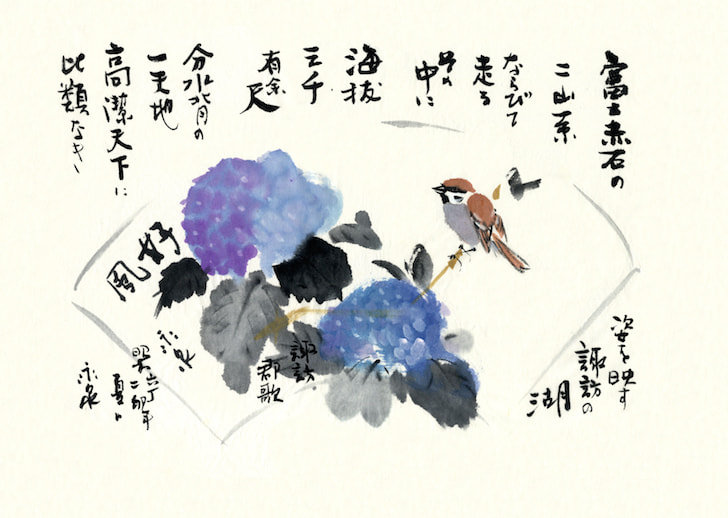 富士赤石の
二山系
ならびて
走る
その
中に
海抜
三千
有余
尺
分水背の
一天地
高潔天下に
比類なき
姿を映す
諏訪の
湖
諏訪
郡歌
好
風
夏日